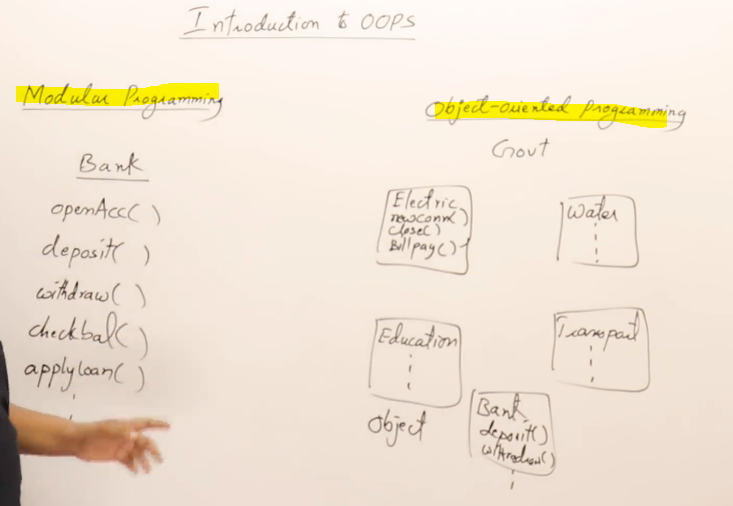 Introduction to OOPS
Modular Programming
Bank
openAcc( )
deposit( )
withdraw( )
checkbal( )
applyloan( )
Object-oriented Programming
Govt
Electric
newconn( )
close( )
Billpay( )
Water
Education
Transport
Object
Bank
deposit( )
withdraw( )